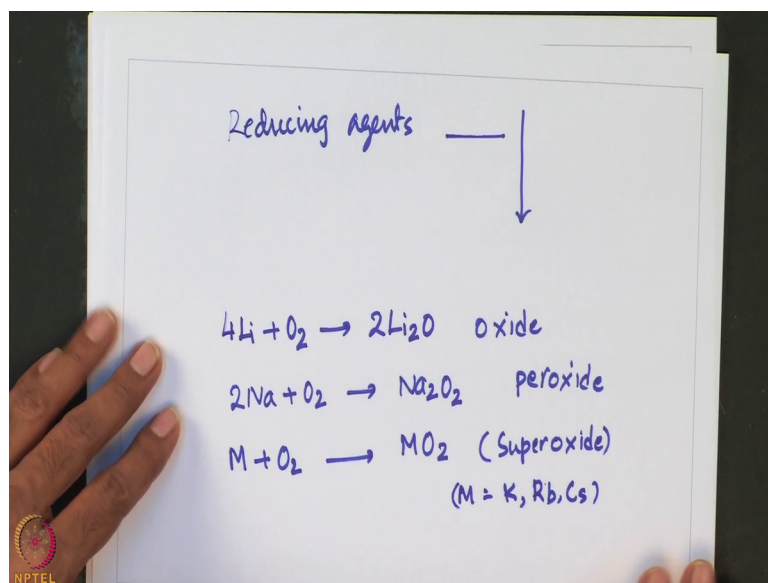 Reducing agents
4Li + O₂ → 2Li₂O oxide
2Na + O₂ → Na₂O₂ peroxide
M + O₂ → MO₂ (Superoxide)
(M = K, Rb, Cs)
NPTEL